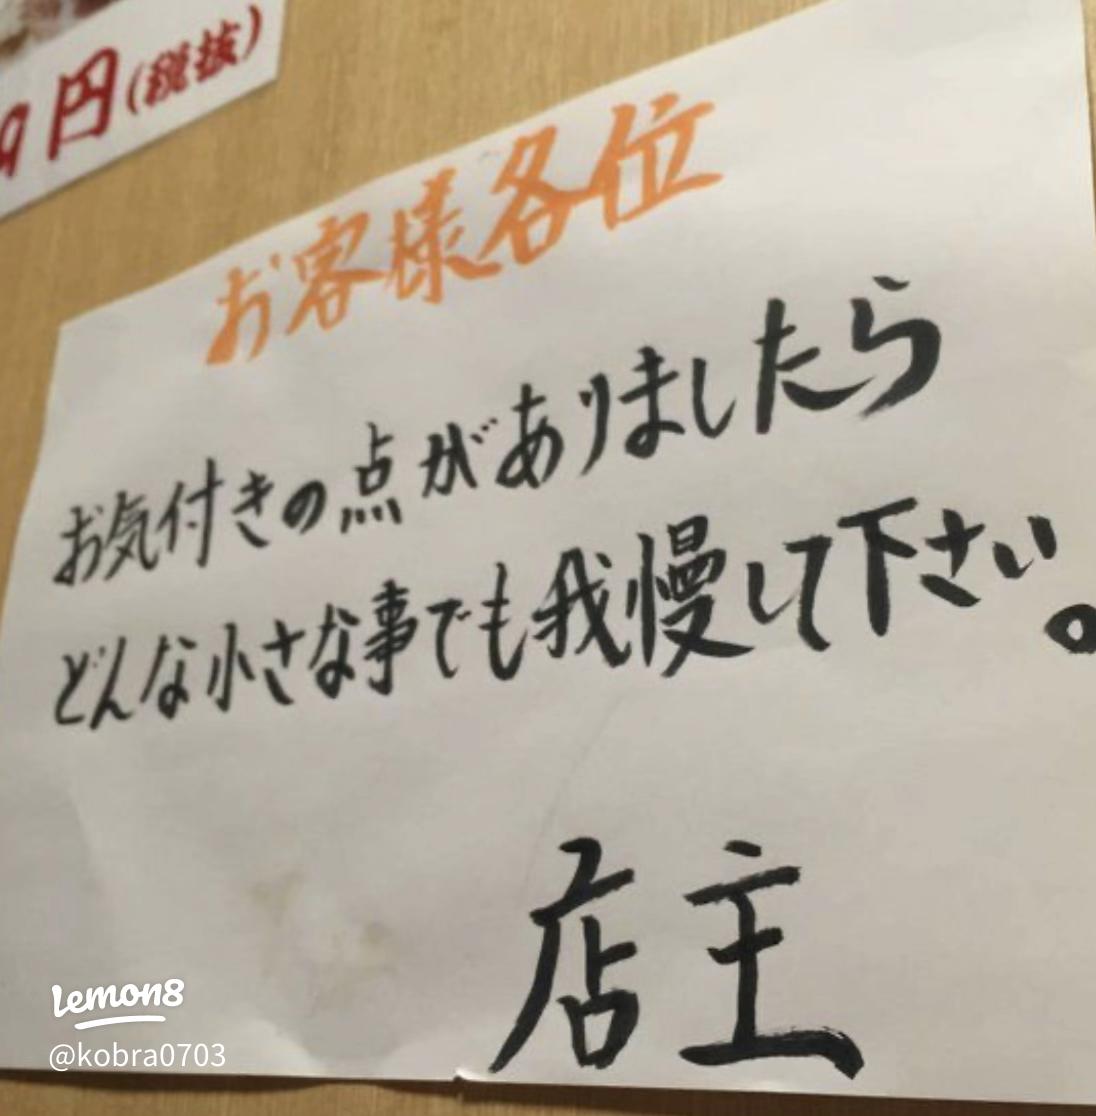 9円(税抜)
お客様各位
お気付きの点がありましたら
どんな小さな事でも我慢して下さい。
店主
Lemon8
@kobra0703